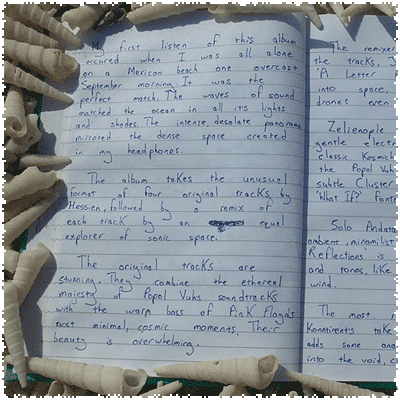 My first listen of this album
occured when I was all alone
on a Mexican beach one overcast
September morning. It was the
perfect match. The waves of sound
matched the ocean in all it's lights
and shades. The intense, desolate panorama
mirrored the dense space created
in my headphones.
The album takes the unusual
format of four original tracks by
Hessien, followed by a remix of
each track by an equel
explorer of sonic space.
The original tracks are
stunning. They combine the ethereal
majesty of Popol Vuhs soundtracks
with the warp bass of Pink Floyds
most minimal, cosmic moments. Their
beauty is overwhelming.
The remixer
the tracks. J
'A Letter
into space,
drones even
Zelienople
gentle electr
classic Kosmich
the Popol Vuh
subtle Cluster
'What If?' Fans
Solo Andata
ambient, minimalist
Reflections is
and tones, like
wind.
The most
Konntinentis take
adds some and
into the void, c